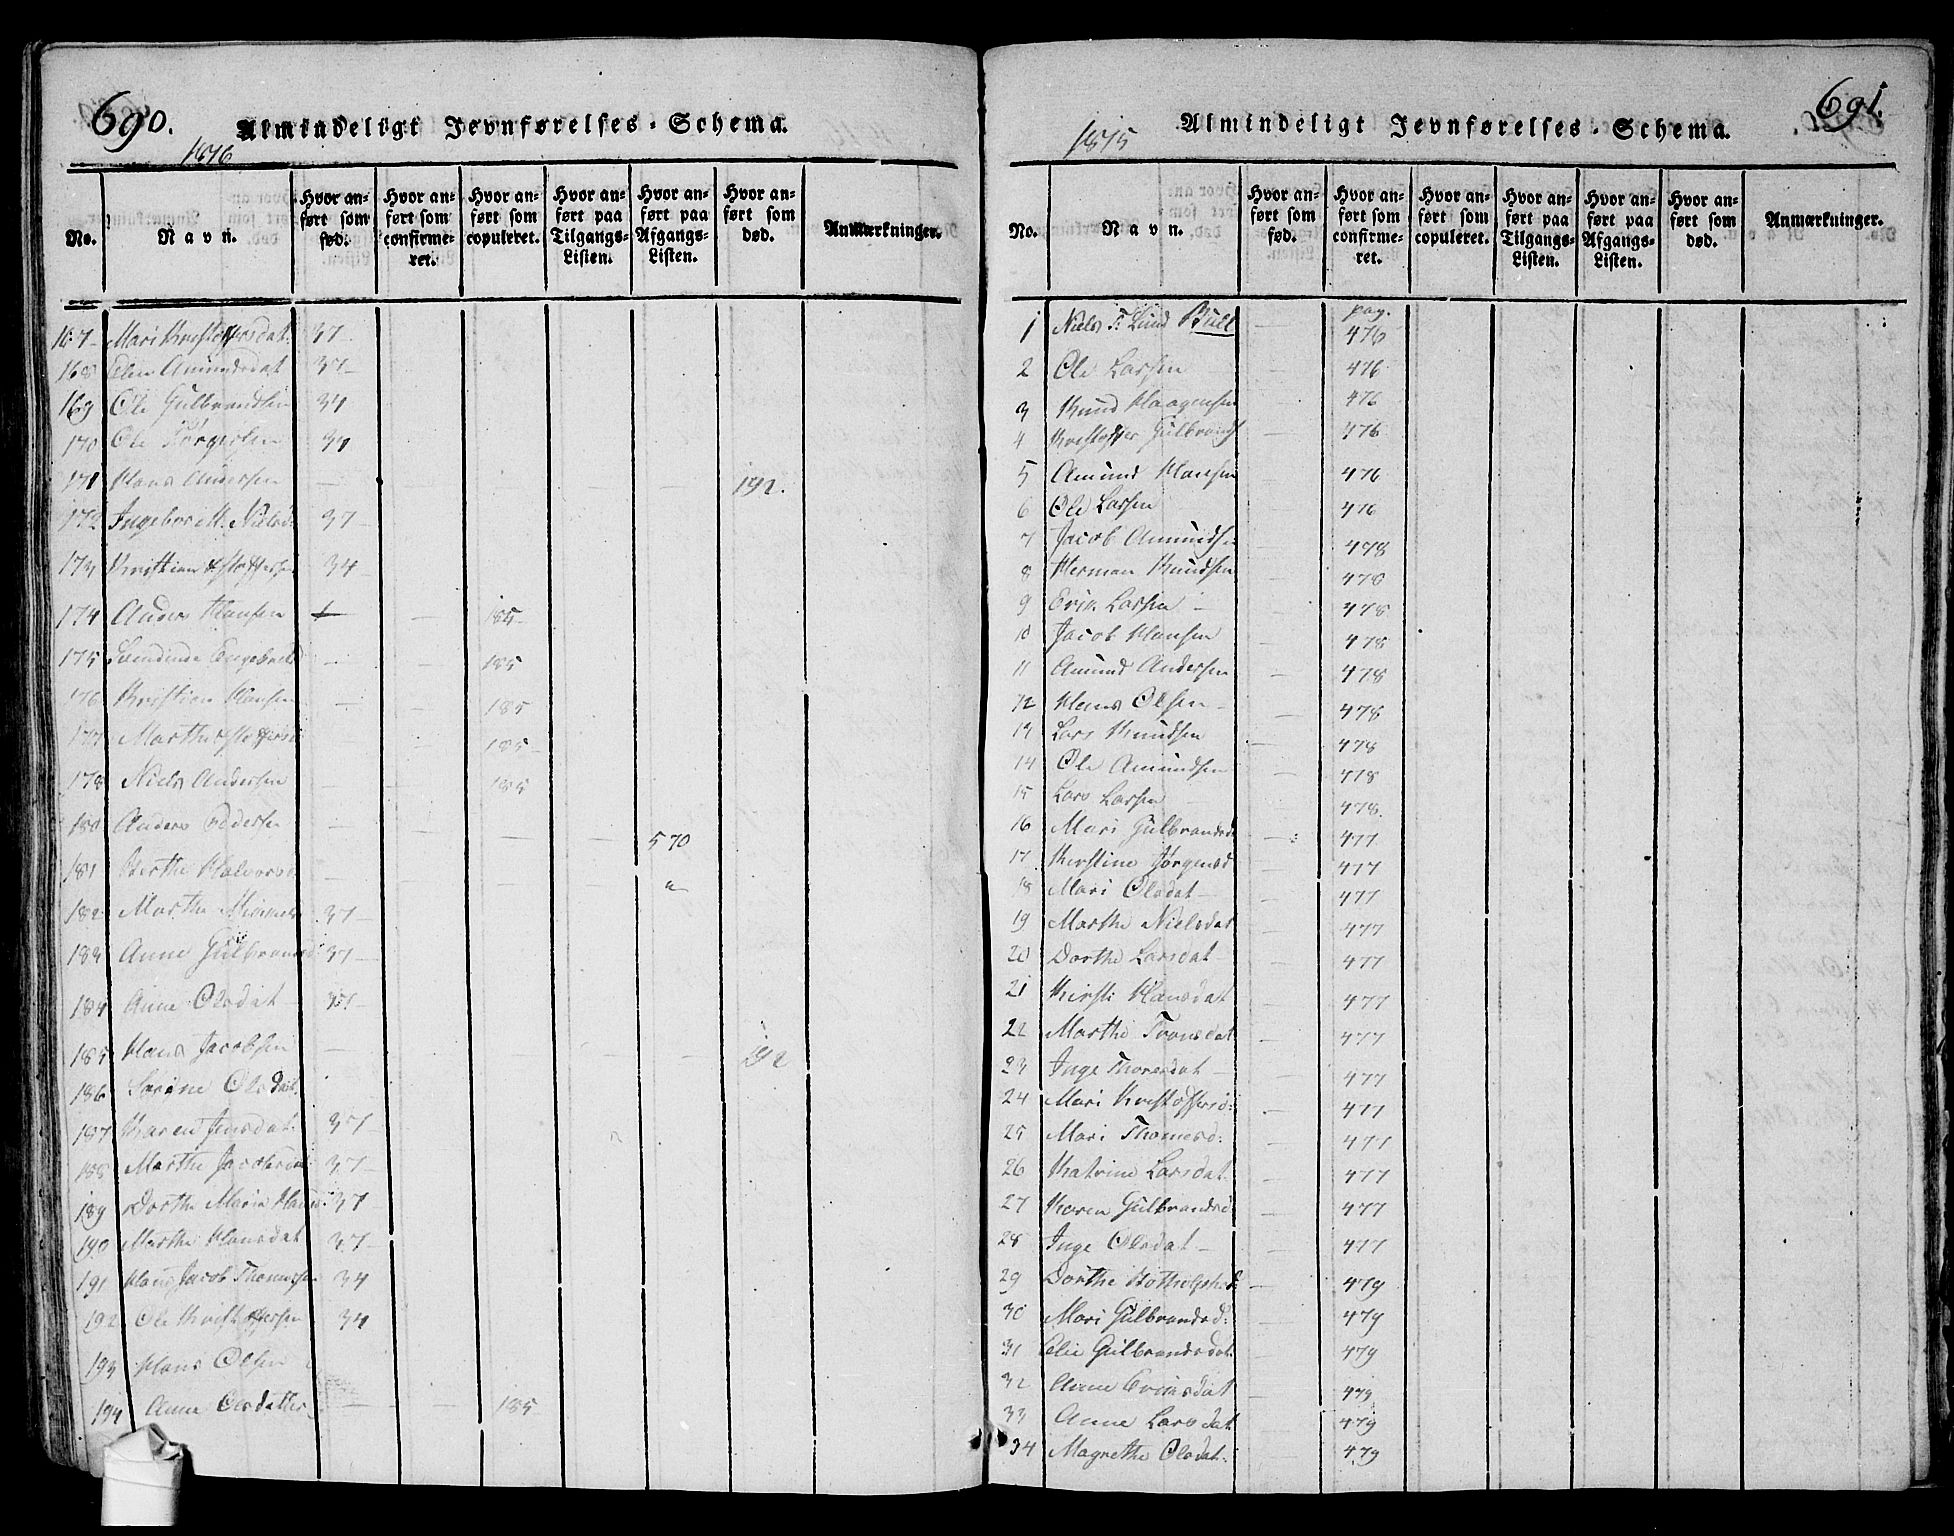 690.
Almindeligt Jevnførelses-Schema.
1816
No.
Navn.
Hvor anført som fød.
Hvor anført som confirmeret.
Hvor anført som copuleret.
Hvor anført paa Tilgangs-Listen.
Hvor anført paa Afgangs-Listen.
Hvor anført som død.
Anmærkninger.
167 Mari Krestoffersdat. 37
168 Elen Amundsdat 37
169 Ole Gulbrandsen 34
170 Ole Jørgensen 34
171 Hans Andersen — 192.
172 Ingebor M. Nielsd: 37
173 Kristian 34
174 Anders Hansen — — 185
175 — — 185
176 Kristian Hansen — — 185
177 Marthe — — 185
178 Niels Andersen — — 185
180 Anders Pedersen — — — — 570
181 Berthe Halvorsd — — — —
182 Marthe 37
183 Anne Gulbrandsd: 37
184 Anne Olsdat 37
185 Hans Jacobsen — — — 192
186 Sorine Olsdat.
187 Karen Jensdat. 37
188 Marthe Jacobsdat 37
189 Dorthe Maria Hansd: 37
190 Marthe Hansdat 37
191 Hans Jacob Thomesen 34
192 Ole Kristoffersen 34
193 Hans Olsen
194 Anne Olsdatter — — 185
691.
Almindeligt Jevnførelses-Schema.
1815
No.
Navn.
Hvor anført som fød.
Hvor anført som confirmeret.
Hvor anført som copuleret.
Hvor anført paa Tilgangs-Listen.
Hvor anført paa Afgangs-Listen.
Hvor anført som død.
Anmærkninger.
pag.
1 Niels T. Lund Bull — 476
2 Ole Larsen — 476
3 Knud Haagensen — 476
4 Krestoffer Gulbrands — 476
5 Amund Hansen — 476
6 Ole Larsen — 476
7 Jacob Amundsen — 478
8 Herman Knudsen — 478
9 Erik Larsen — 478
10 Jacob Hansen — 478
11 Amund Andersen — 478
12 Hans Olsen — 478
13 Lars Knudsen — 478
14 Ole Amundsen — 478
15 Lars Larsen — 478.
16 Mari Gulbrandsd — 477
17 Kirstine Jørgensd — 477
18 Mari Olsdat — 477
19 Marthe Nielsdat — 477
20 Dorthe Larsdat — 477
21 Kirsti Hansdat — 477
22 Marthe Tronsdat — 477
23 Inge Thoresdat — 477
24 Mari Krestoffersd: — 477
25 Mari Thomesd: — 477
26 Katrine Larsdat — 477
27 Karen Gulbrandsd — 477
28 Inge Olsdat — 477
29 Dorthe — 479
30 Mari Gulbrandsd: — 479
31 Elie Gulbrandsdat: — 479
32 Anne Erinsdat — 479
33 Anne Larsdat — 479
34 Magrethe Olsdat. — 479